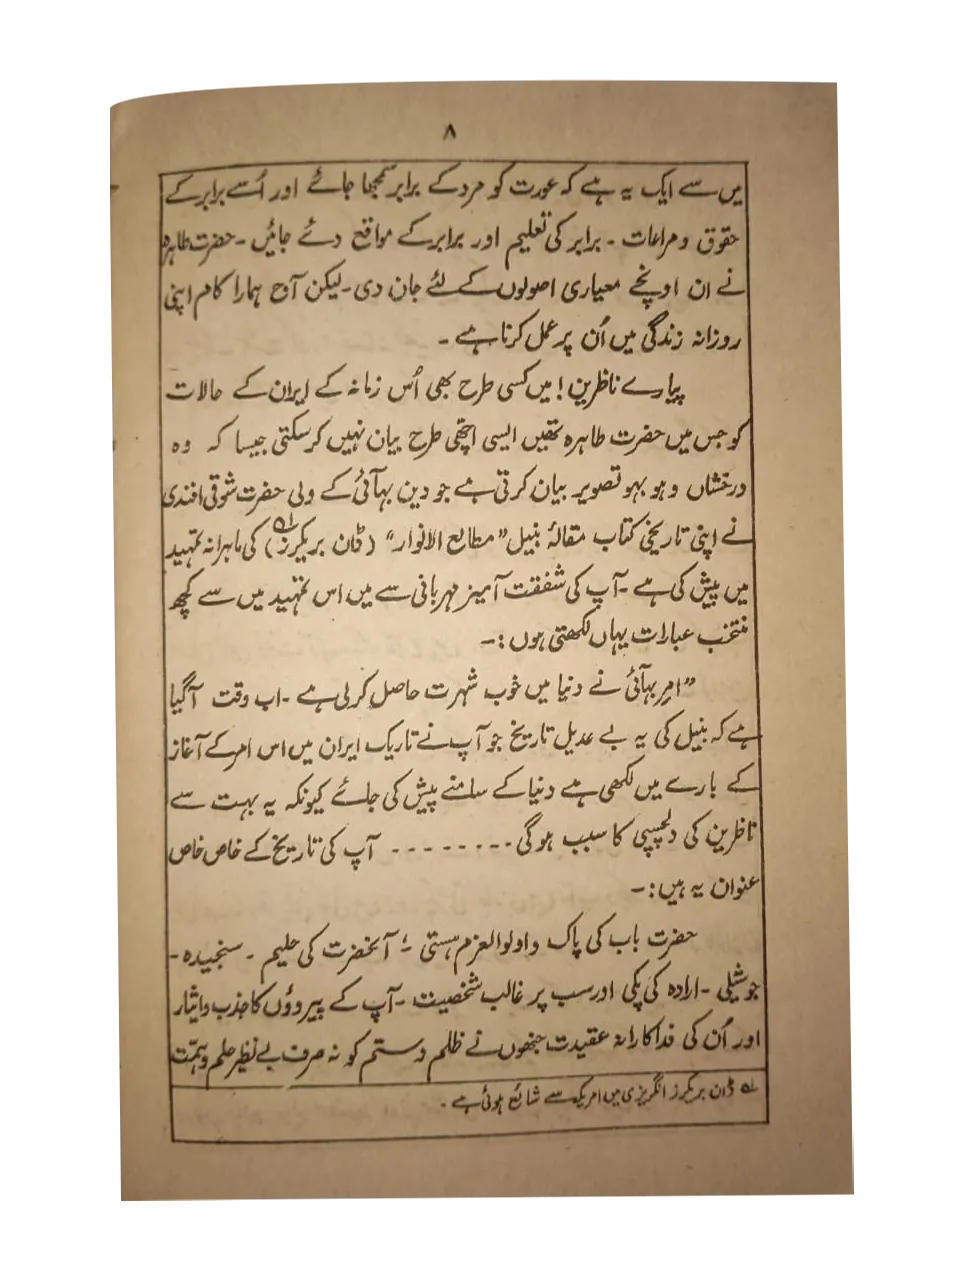 ۸
میں سے ایک یہ ہے کہ عورت کو مرد کے برابر سمجھا جائے اور اُسے برابر کے
حقوق و مراعات - برابر کی تعلیم اور برابر کے مواقع دئے جائیں - حضرت طاہرہ
نے ان اونچے معیاری اصولوں کے لئے جان دی - لیکن آج ہمارا کام اپنی
روزانہ زندگی میں اُن پر عمل کرنا ہے -
پیارے ناظرین! میں کسی طرح بھی اُس زمانہ کے ایران کے حالات
کو جس میں حضرت طاہرہ تھیں ایسی اچھی طرح بیان نہیں کر سکتی جیسا کہ وہ
درخشاں و ہو بہو تصویر بیان کرتی ہے جو دین بہآئی کے ولی حضرت شوقی افندی
نے اپنی تاریخی کتاب مقالۂ نبیل "مطالع الانوار" (ڈان بریکرز) لہ کی ماہرانہ تمہید
میں پیش کی ہے - آپ کی شفقت آمیز مہربانی سے میں اس تمہید میں سے کچھ
منتخب عبارات یہاں لکھتی ہوں :-
"امرِ بہآئی نے دنیا میں خوب شہرت حاصل کر لی ہے - اب وقت آ گیا
ہے کہ نبیل کی یہ بے عدیل تاریخ جو آپ نے تاریک ایران میں اس امر کے آغاز
کے بارے میں لکھی ہے دنیا کے سامنے پیش کی جائے کیونکہ یہ بہت سے
ناظرین کی دلچسپی کا سبب ہو گی - - - - - - - - آپ کی تاریخ کے خاص خاص
عنوان یہ ہیں :-
حضرت باب کی پاک و اولوالعزم ہستی ؛ آنحضرت کی حلیم - سنجیدہ -
جوشیلی - ارادہ کی پکی اور سب پر غالب شخصیت - آپ کے پیروؤں کا جذب و ایثار
اور اُن کی فداکارانہ عقیدت جنھوں نے ظلم و ستم کو نہ صرف بے نظیر حلم و ہمّت
لہ ڈان بریکرز انگریزی میں امریکہ سے شائع ہوئی ہے -